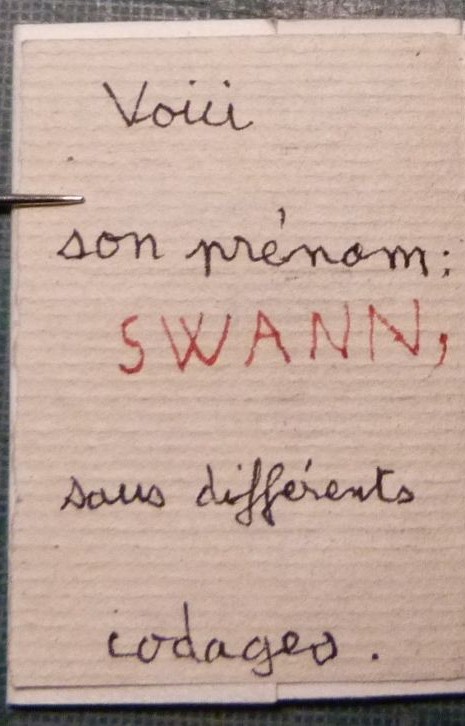 Voici
son prénom:
SWANN,
sous différents
codages.